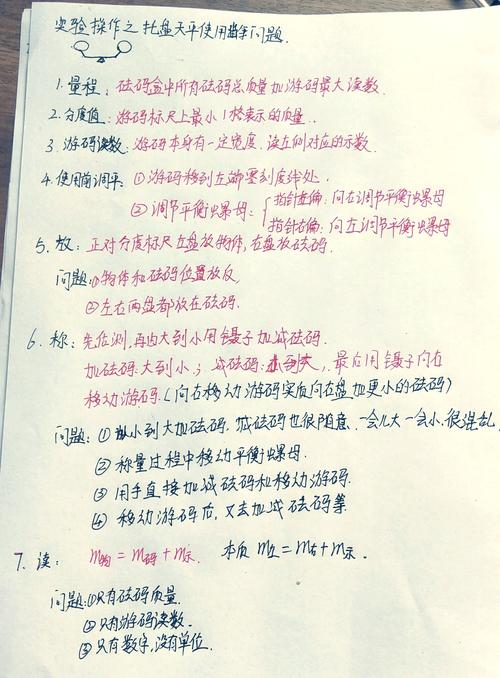 实验操作之托盘天平使用常问题.
1.量程:砝码盒中所有砝码总质量加游码最大读数.
2.分度值:游码标尺上最小1格表示的质量.
3.游码读数:游码本身有一定宽度.读左侧对应的示数.
4.使用前调平:①游码移到左端零刻度线处.
②调节平衡螺母:{指针左偏:向右调节平衡螺母
指针右偏:向左调节平衡螺母
5.放:正对分度标尺左盘放物体,右盘放砝码.
问题:①物体和砝码位置放反
②左右两盘都放在砝码.
6.称:先估测,再由大到小用镊子加减砝码.
加砝码:大到小;减砝码:,最后用镊子向右
移动游码.(向右移动游码实质向右盘加更小的砝码)
问题:①从小到大加砝码,减砝码也很随意.一会儿大一会小.很混乱
②称量过程中移动平衡螺母.
③用手直接加减砝码和移动游码.
④移动游码后,又去加减砝码等
7.读:m物=m码+m示. 本质m左=m右+m示.
问题:①只有砝码质量.
②只有游码读数.
③只有数字,没有单位.